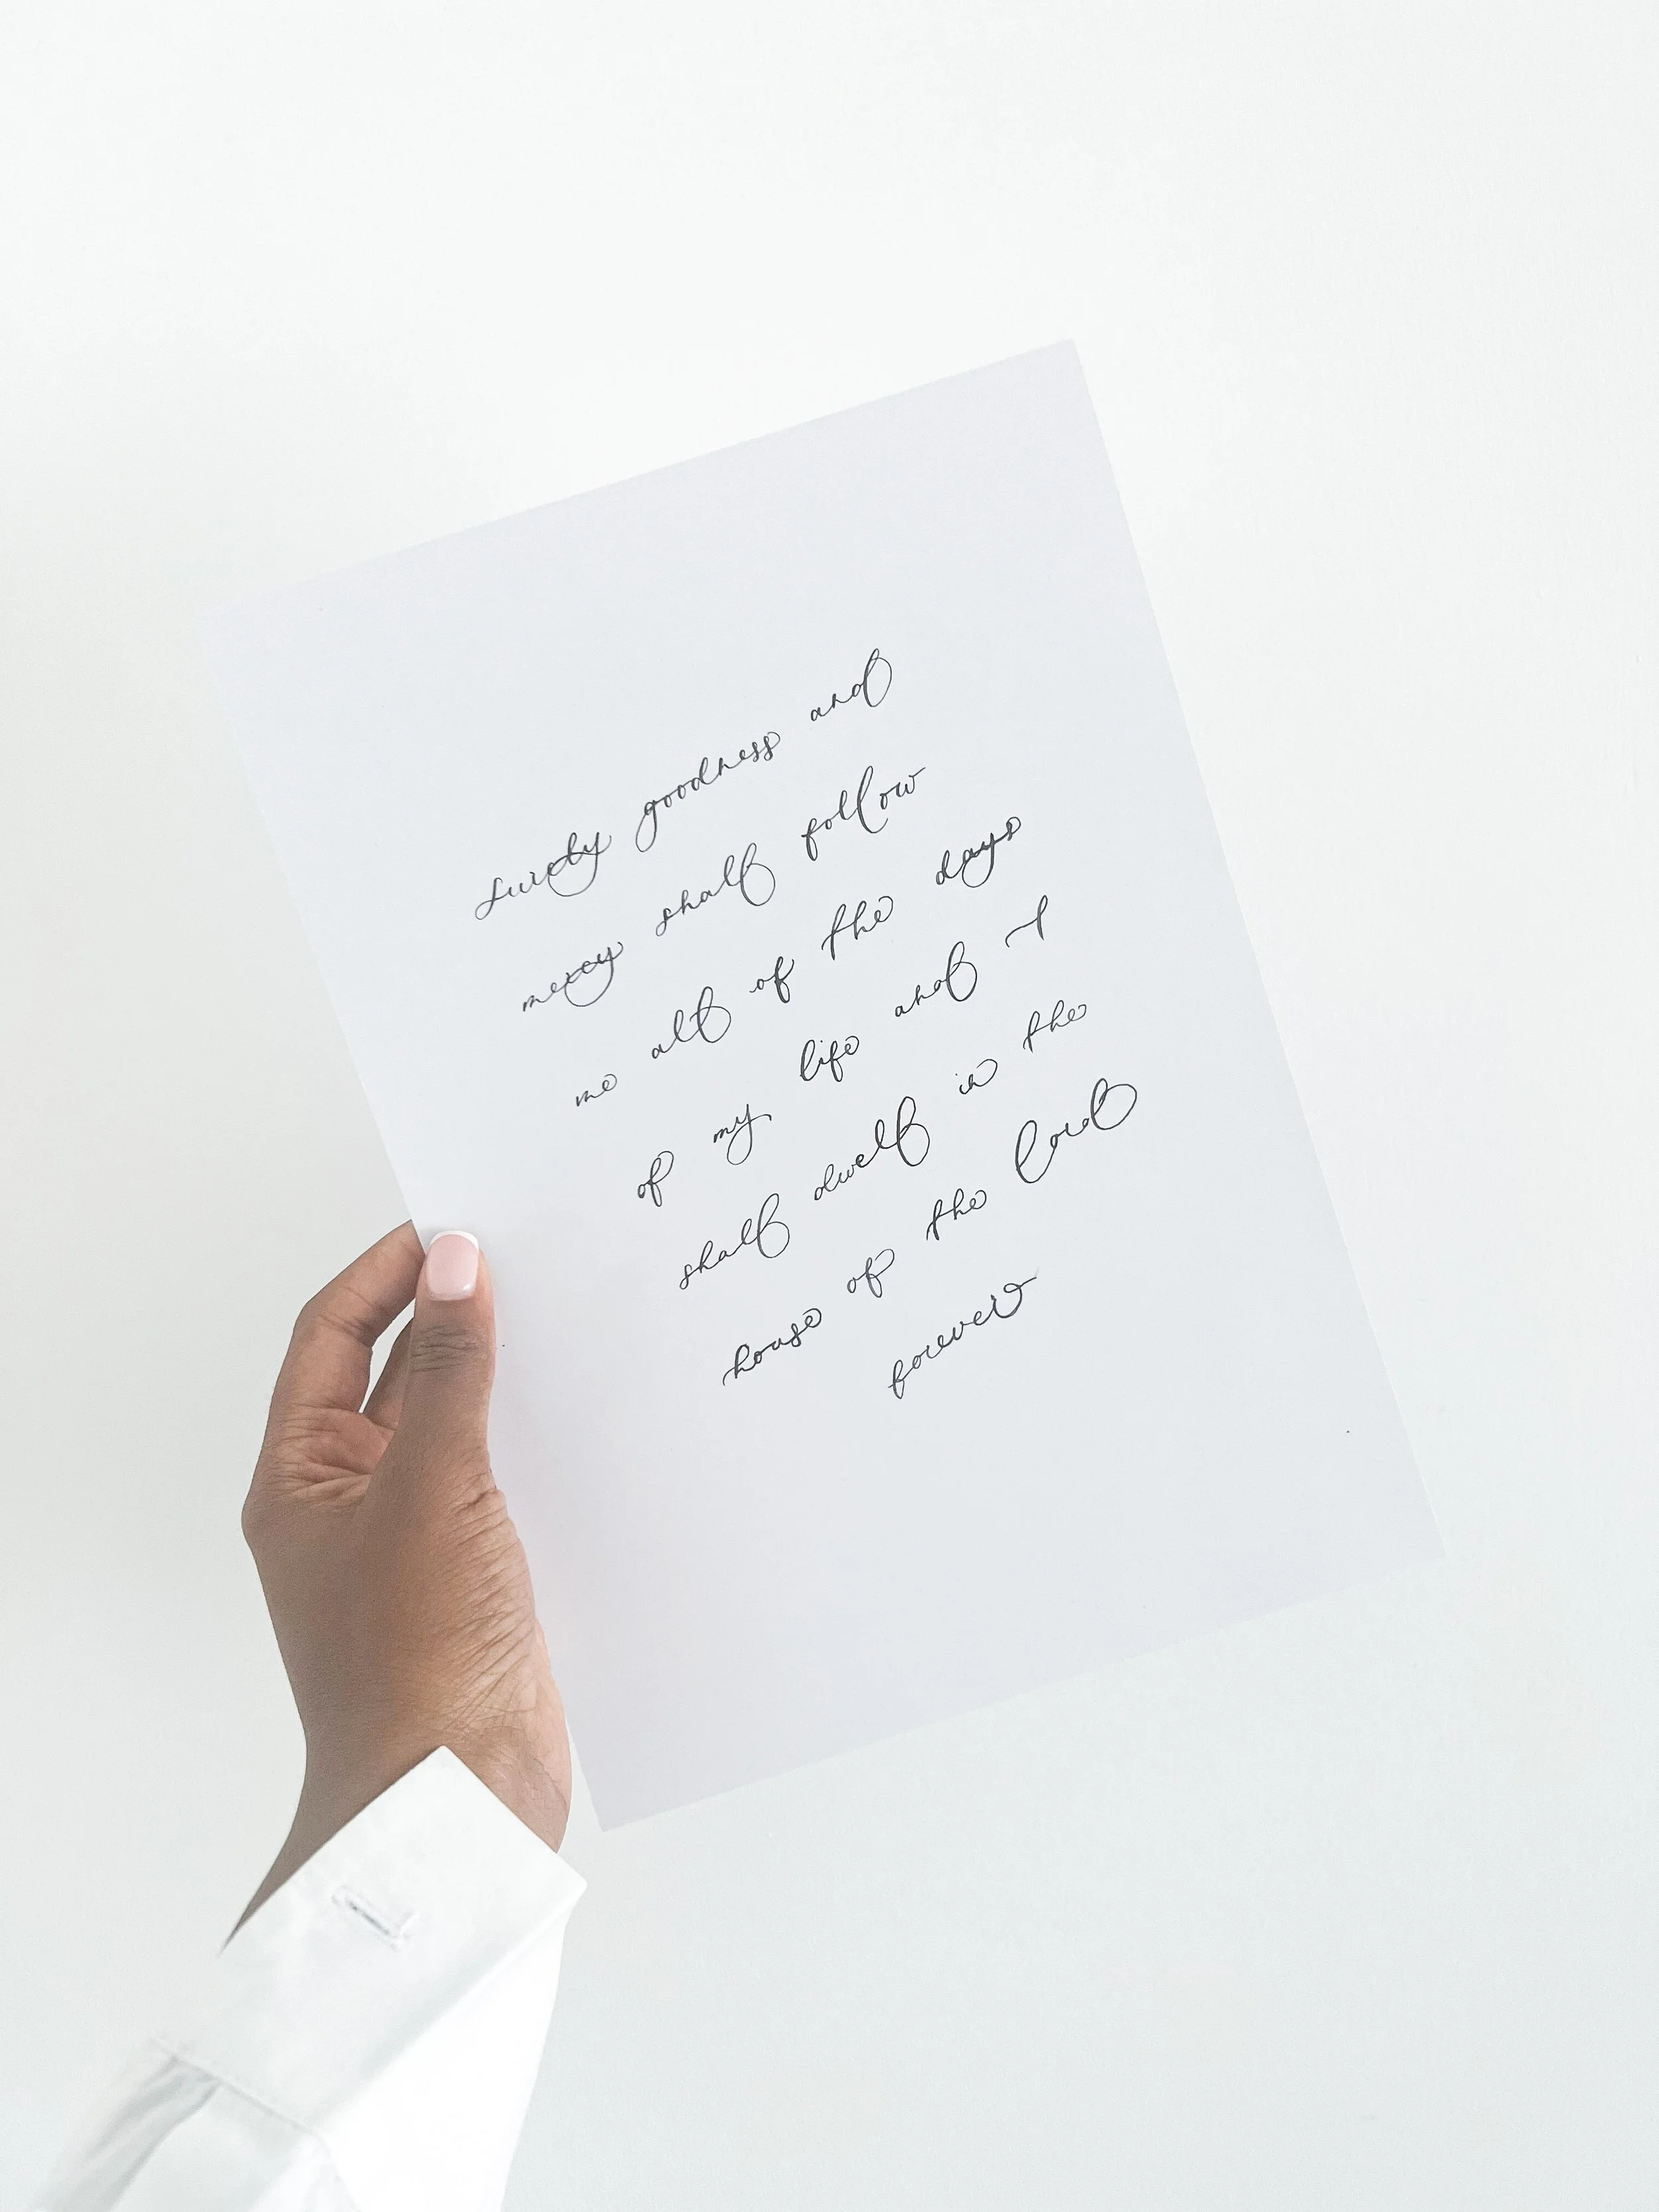 surely goodness and
mercy shall follow
me all of the days
of my life and I
shall dwell in the
house of the Lord
forever